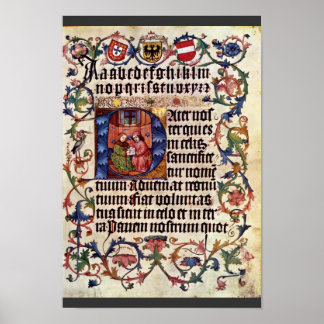 Aabcdefghiklm
nopqrſstuvxyz
Pater noſ
ter qui es
in celis
Sanctifice
tur nomen
tuum Adveniat regnū
tuum Fiat voluntas
tua ſicut in celo et in ter
ra Panem noſtrum quot